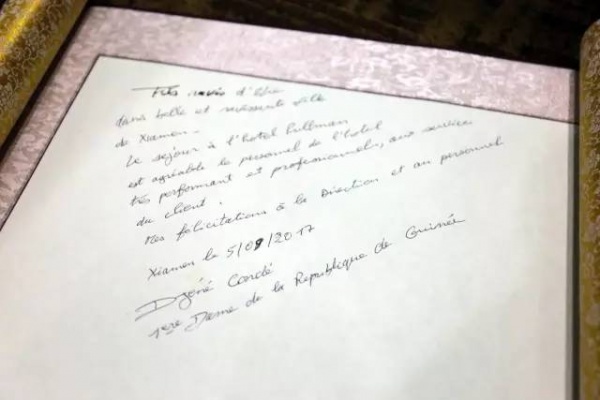 Très ravie d'être
dans belle et ravissante ville
de Xiamen.
Le séjour à l'hotel pullman
est agréable le personnel de l'hotel
très performant et professionnels, aux services
du client.
Mes félicitations à la Direction et au personnel
Xiamen le 5/09/2017
Djéné Condé
1ère Dame de la République de Guinée